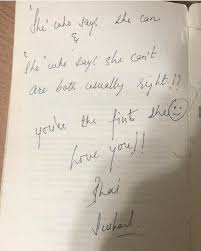 'She' who says she can
&
'She' who says she can't
are both usually right!!
you're the first she
Love you!!
Bhai